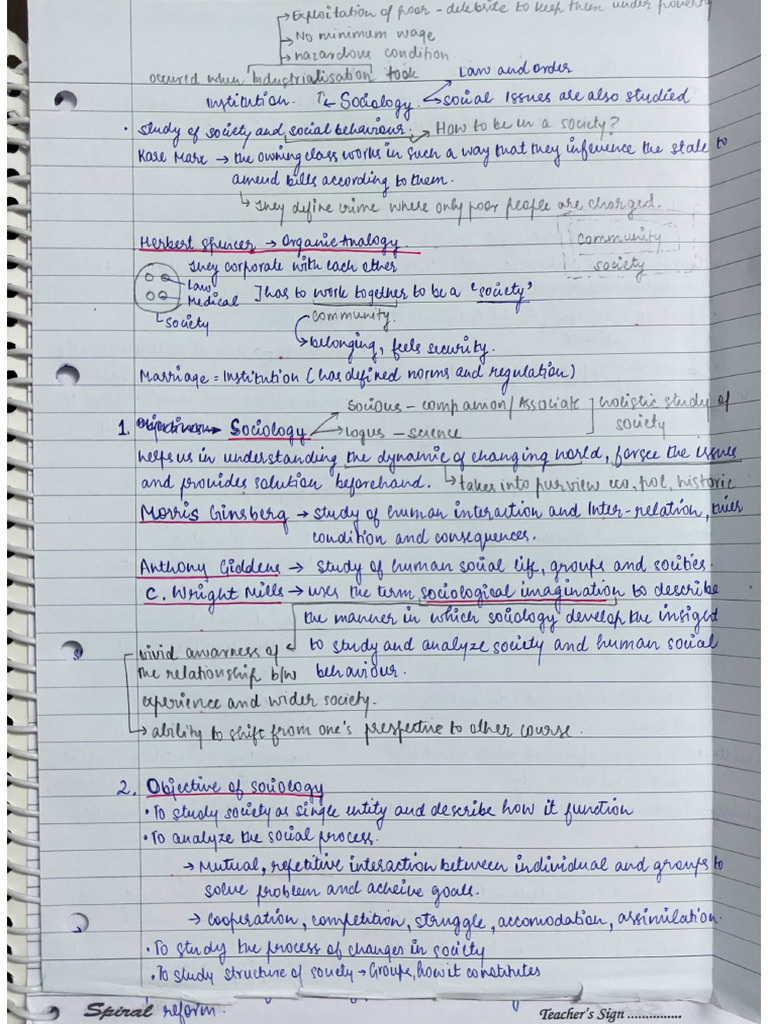 → Exploitation of poor - deleberate to keep them under poverty
→ No minimum wage
→ hazardous condition
occured when Industrialisation took
Law and order
Institution. ↑ ← Sociology → social Issues are also studied
• Study of society and social behaviour. → How to be in a society?
Karl Marx → the owning class works in such a way that they inference the state to
amend bills according to them.
↳ They define crime where only poor people are charged.
Herbert Spencer → Organic Analogy.
community
society
They corporate with each other
Law
Medical ] has to work together to be a 'society'
↳ Society
community.
↳ belonging, feels security.
Marriage = Institution (has defined norms and regulation)
Socious - companion / Associate ] holistic study of
1. Sociology
society
logus - science
helps us in understanding the dynamic of changing world, forsee the issues
and provides solution beforehand. ↳ takes into purview eco, pol, historic
Morris Ginsberg → study of human interaction and Inter-relation, their
condition and consequences.
Anthony Giddens → Study of human social life, groups and socities.
C. Wright Mills → uses the term sociological imagination to describe
the manner in which sociology develop the insight
to study and analyze society and human social
behaviour.
vivid awarness of
the relationship b/w
experience and wider society.
→ ability to shift from one's prespective to other course.
2. Objective of sociology
• To study society as single entity and describe how it function
• To analyze the social process.
→ Mutual, repetitive interaction between individual and groups to
solve problem and acheive goals.
→ cooperation, competition, struggle, accomodation, assimilation.
• To study the process of changes in society
• To study structure of society → Groups, how it constitutes
Spiral reform.
Teacher's Sign ...............